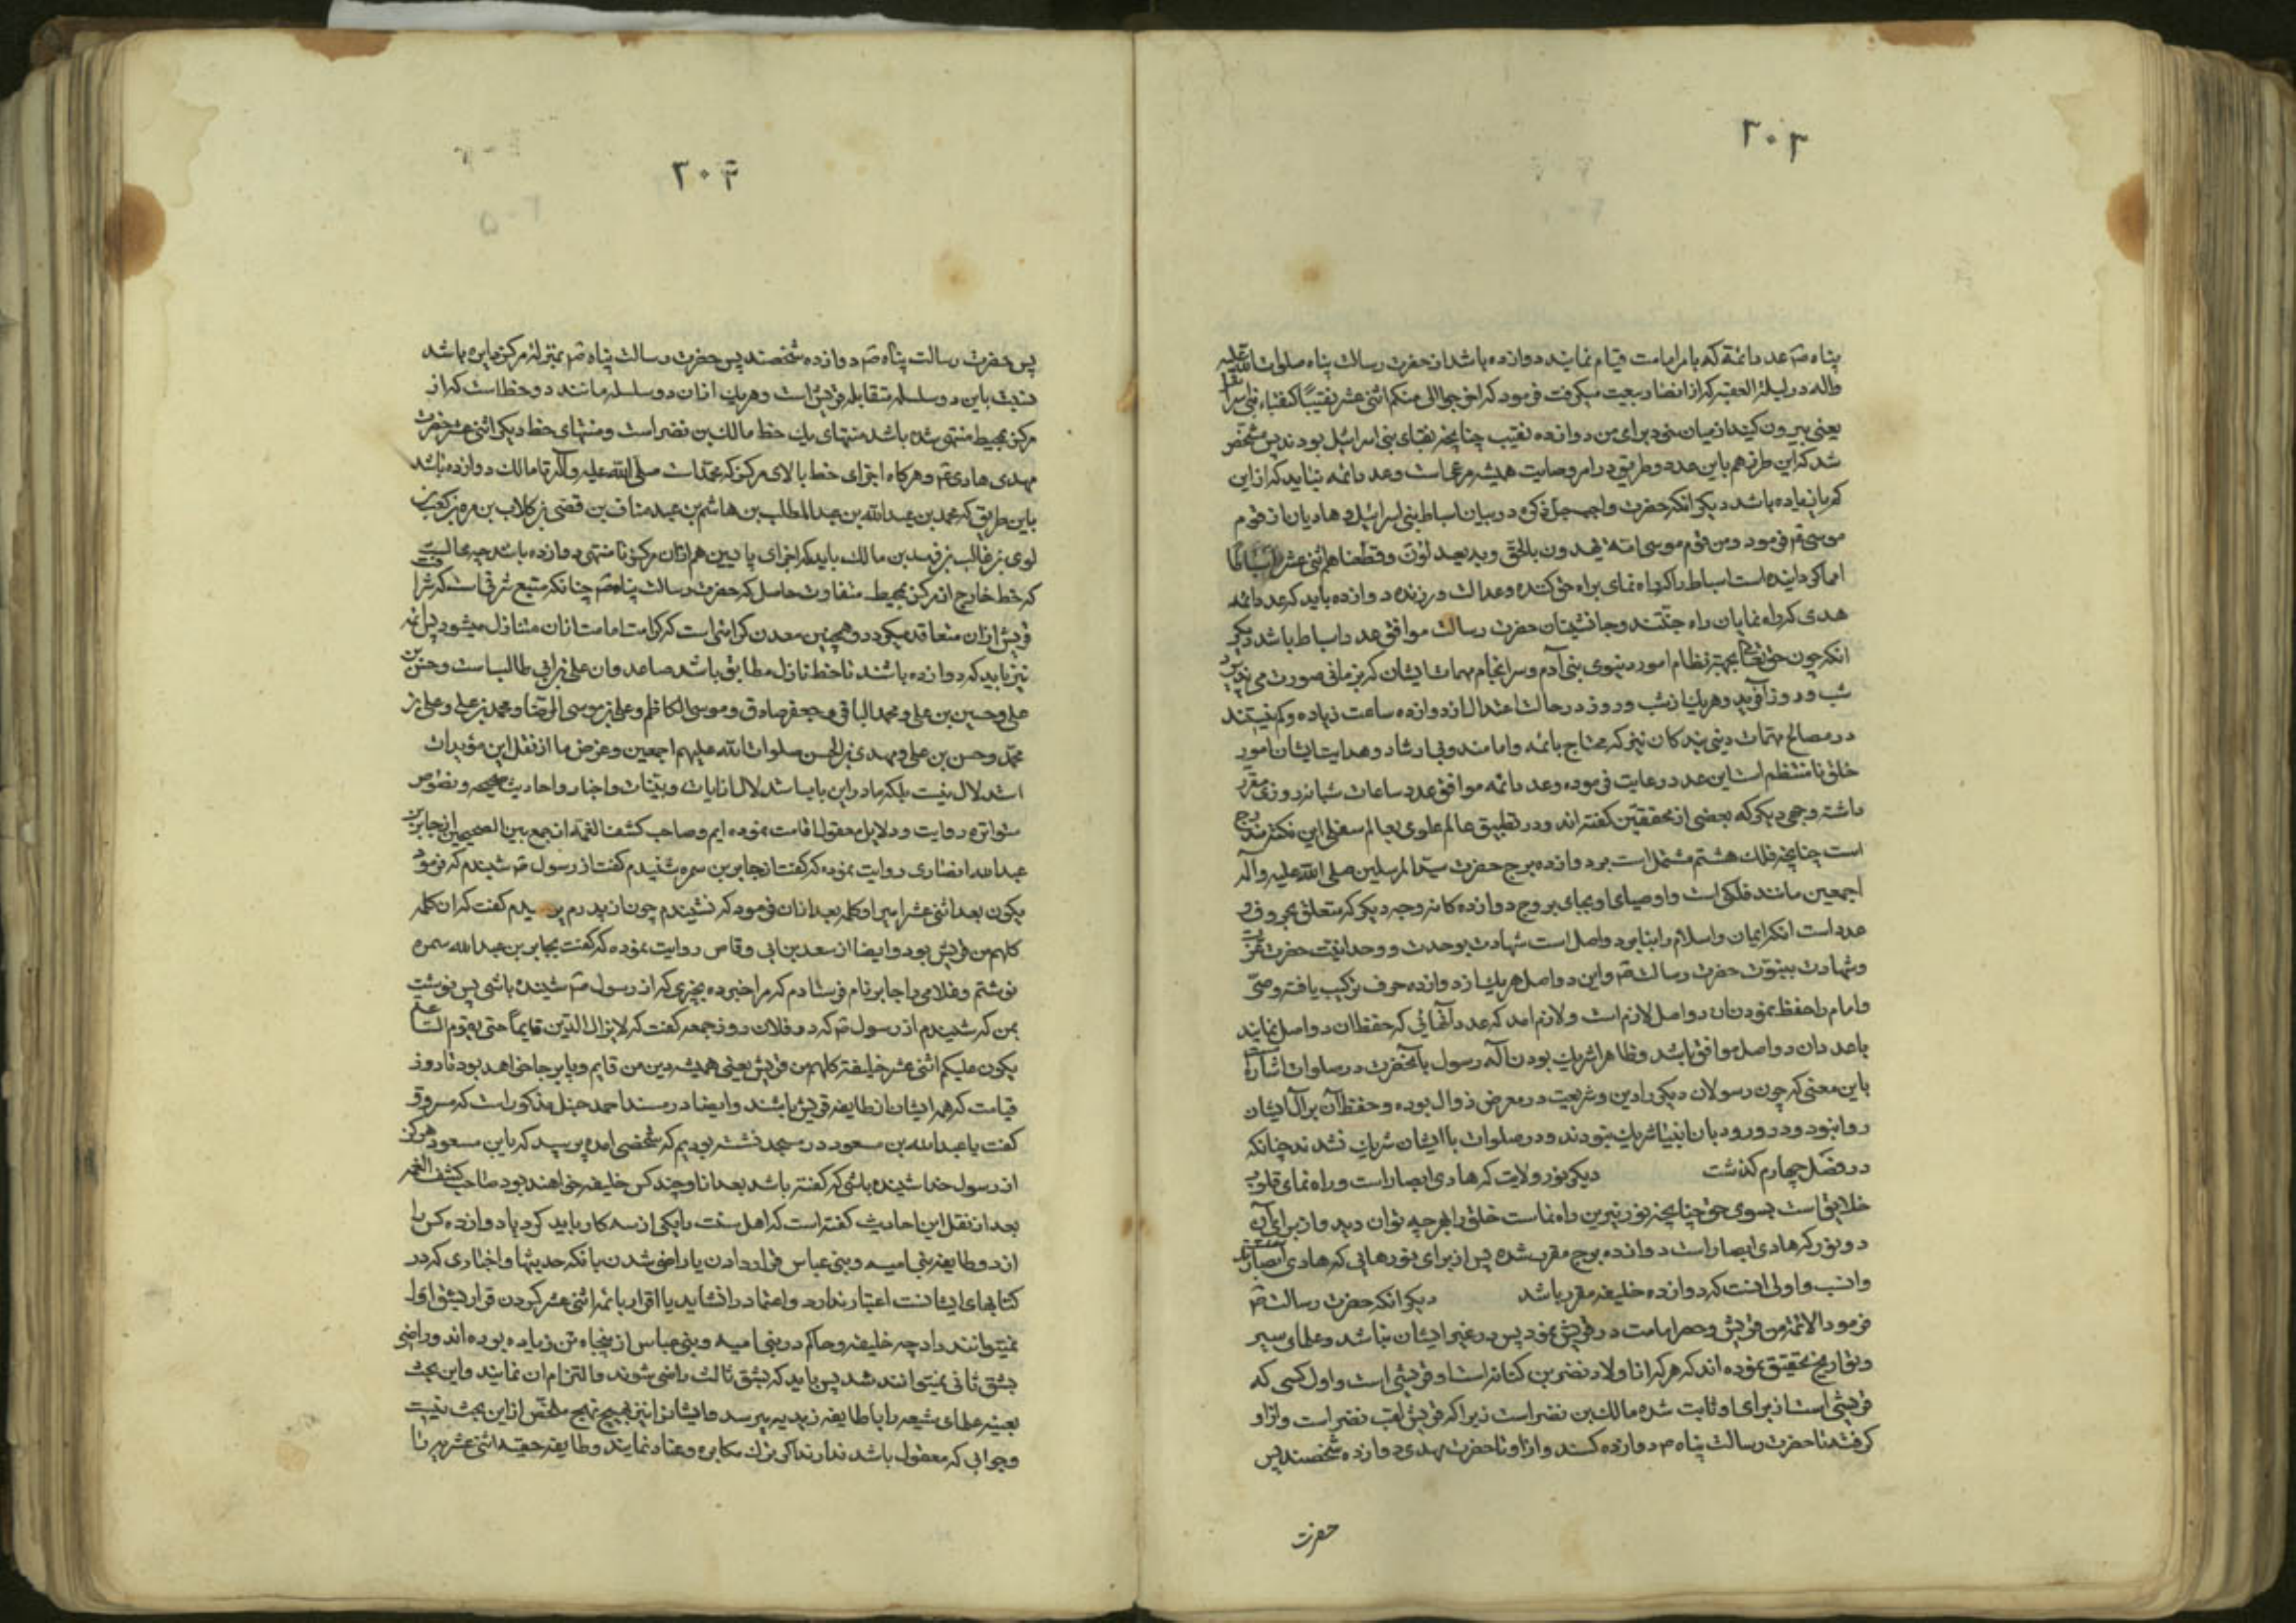 ۳۰۳
پناه ص عدد ائمه که بامر امامت قیام نمایند دوازده باشد از حضرت رسالت پناه صلوات الله علیه
واله در لیلة العقبه که از انصار بیعت میگرفت فرمود که اخرجوا الی منکم اثنی عشر نقیبًا کنقباء بنی اسرا
یعنی بیرون کنید از میان خود برای من دوازده نقیب چنانچه نقبای بنی اسرائیل بودند پس مشخص
شد که این طرز هم باین عدد و طریق در امر وصایت همیشه مرعی است و عدد ائمه نباید که از این
کم یا زیاده باشد دیگر انکه حضرت واجب جل ذکره در بیان اسباط بنی اسرائیل و هادیان از قوم
موسی ع فرمود ومن قوم موسی امة یهدون بالحق وبه یعدلون وقطعناهم اثنی عشر اسباطًا
امما گردانیده است اسباط را که راه نمای براه حق کننده و عدالت ورزنده دوازده باید که عدد ائمه
هدی که راه نمایان راه جنتند و جانشینان حضرت رسالت موافق عدد اسباط باشد دیگر
انکه چون حق تعالی بجهت نظام امور دنیوی بنی آدم و سرانجام مهمات ایشان که در زمانی صورت می پذیرد
شب و روز آفرید و هریک از شب و روز در حالت اعتدال از دوازده ساعت زیاده و کم نیستند
در مصالح مهمات دینی بندکان نیز که محتاج بائمه و امامند و بی ارشاد و هدایت ایشان امور
خلق نامنتظم است این عدد رعایت فرموده و عدد ائمه موافق عدد ساعات شبانه روزی مقرر
داشته وجهی دیگر که بعضی از محققین گفته اند و در تطبیق عالم علوی بعالم سفلی این نکته مندرج
است چنانچه فلک هشتم مشتمل است بر دوازده برج حضرت سید المرسلین صلی الله علیه وآله
اجمعین مانند فلکی است و اوصیای او بجای بروج دوازده کانه وجه دیگر که متعلق بحروف و
عدد است انکه ایمان و اسلام را بنا بر دو اصل است شهادت بوحدت و وحدانیت حضرت عزت
و شهادت بنبوت حضرت رسالت ص و این دو اصل هریک از دوازده حرف ترکیب یافته وصی
و امام را حفظ نمودن ان دو اصل لازم است و لازم امد که عدد آنهائی که حفظ ان دو اصل نمایند
با عدد ان دو اصل موافق باشد و ظاهرا شریک بودن آله رسول با آنحضرت در صلوات اشارت
باین معنی که چون رسولان دیگر را دین و شریعت در معرض زوال بوده و حفظ آن بر آل ایشان
روا نبود و در ورود بان انبیا شریک نبودند و در صلوات با ایشان شریک نشدند چنانکه
در فصل چهارم گذشت دیگر نور ولایت که هادی ابصار است و راه نمای قلوب
خلایق است بسوی حق چنانچه نور نیرین راه نماست خلق را بهرچه توان دید و از برای آن
دو نور که هادی ابصار است دوازده برج مقرر شده پس از برای نورهایی که هادی بصایرند
وانسب و اولی انست که دوازده خلیفه مقرر باشد دیگر انکه حضرت رسالت ص
فرمود الائمة من قریش و حصر امامت در قریش نمود پس در غیر ایشان نباشد و علمای سیر
و تواریخ تحقیق نموده اند که هرکه از اولاد نضر بن کنانه است او قریشی است و اول کسی که
قریشی است از برای او ثابت شده مالک بن نضر است زیرا که قریش لقب نضر است و از او
گرفته تا حضرت رسالت پناه ص دوازده کسند و از او تا حضرت مهدی دوازده شخصند پس
حضرت
۳۰۴
پس حضرت رسالت پناه ص دوازده شخصند پس حضرت رسالت پناه ص بمنزله مرکز دایره باشد
نسبت باین دو سلسله متقابله قریش است و هریک ازان دو سلسله مانند دو خط است که از
مرکز بمحیط منتهی شده باشد منتهای یک خط مالک بن نضر است و منتهای خط دیگر اثنی عشر حضرت
مهدی هادی ع و هرکاه اجزای خط بالای مرکز که محمد است صلی الله علیه وآله تا مالک دوازده باشد
باین طریق که محمد بن عبدالله بن عبدالمطلب بن هاشم بن عبدمناف بن قصی بن کلاب بن مره بن کعب بن
لوی بن غالب بن فهر بن مالک باید که اجزای پایین هم ازان مرکز تا منتهی دوازده باشد چه محالست
که خط خارج از مرکز بمحیط متفاوت حاصل که حضرت رسالت پناه ص چنانکه منبع شرفی است که شرافت
قریش ازان متعاقد میگردد و همچنین معدن کرامتی است که کرامت امامت ازان متنازل میشود پس ائمه
نیز باید که دوازده باشند تا خط نازل مطابق باشد صاعد وان علی بن ابی طالب است و حسن بن
علی و حسین بن علی و محمد الباقر و جعفر صادق و موسی الکاظم و علی بن موسی الرضا و محمد بن علی و علی بن
محمد و حسن بن علی و مهدی بن الحسن صلوات الله علیهم اجمعین و غرض ما از نقل این مؤیدات
استدلال نیست بلکه ما در این باب استدلال از ایات و بینات و اخبار و احادیث صحیحه و نصوص
متواتره روایت و دلایل معقول اقامت نموده ایم و صاحب کشف الغمه از جمع بین الصحیحین از جابر بن
عبدالله انصاری روایت نموده که گفت از جابر بن سمره شنیدم گفت از رسول ص شنیدم که فرمود
یکون بعد اثنی عشر امیرا و کلمه بعد ازان فرمود که نشنیدم چون از پدرم پرسیدم گفت که ان کلمه
کلهم من قریش بود و ایضا از سعد بن ابی وقاص روایت نموده که گفت بجابر بن عبدالله سمره
نوشتم و غلامی را جابر نام فرستادم که مرا خبر ده بچیزی که از رسول ص شنیده باشی پس نوشت
بمن که شنیدم از رسول ص که در فلان روز جمعه گفت که لایزال الدین قایماً حتی یقوم الساعه
یکون علیکم اثنی عشر خلیفة کلهم من قریش یعنی همیشه دین من قایم و پا برجا خواهد بود تا روز
قیامت که همه ایشان از طایفه قریش باشند و ایضا در مسند احمد حنبل مذکور است که مسروق
گفت با عبدالله بن مسعود در مسجد نشسته بودیم که شخصی امد پرسید که یا بن مسعود هرگز
از رسول خدا شنیده باشی که گفته باشد بعد از او چند کس خلیفه خواهند بود صاحب کشف الغمه
بعد از نقل این احادیث گفته است که اهل سنت را یکی از سه کار باید کرد یا دوازده کس را
از دو طایفه بنی امیه و بنی عباس قرار دادن یا راضی شدن بانکه حدیثها و اخباری که در
کتابهای ایشانست اعتبار ندارد و اعتماد را نشاید یا اقرار بائمه اثنی عشر کردن قرار بشق اول
نمیتوانند داد چه خلیفه و حاکم در بنی امیه و بنی عباس از پنجاه تن زیاده بوده اند و راضی
بشق ثانی نمیتوانند شد پس باید که بشق ثالث راضی شوند و التزام ان نمایند و این بحث
بعینه علمای شیعه را با طایفه زیدیه میرسد و ایشانرا نیز بهیچ نهج مخلص از این بحث نیست
و جوابی که معقول باشد ندارند اگر ترک مکابره و عناد نمایند و طایفه حقه اثنی عشریه را